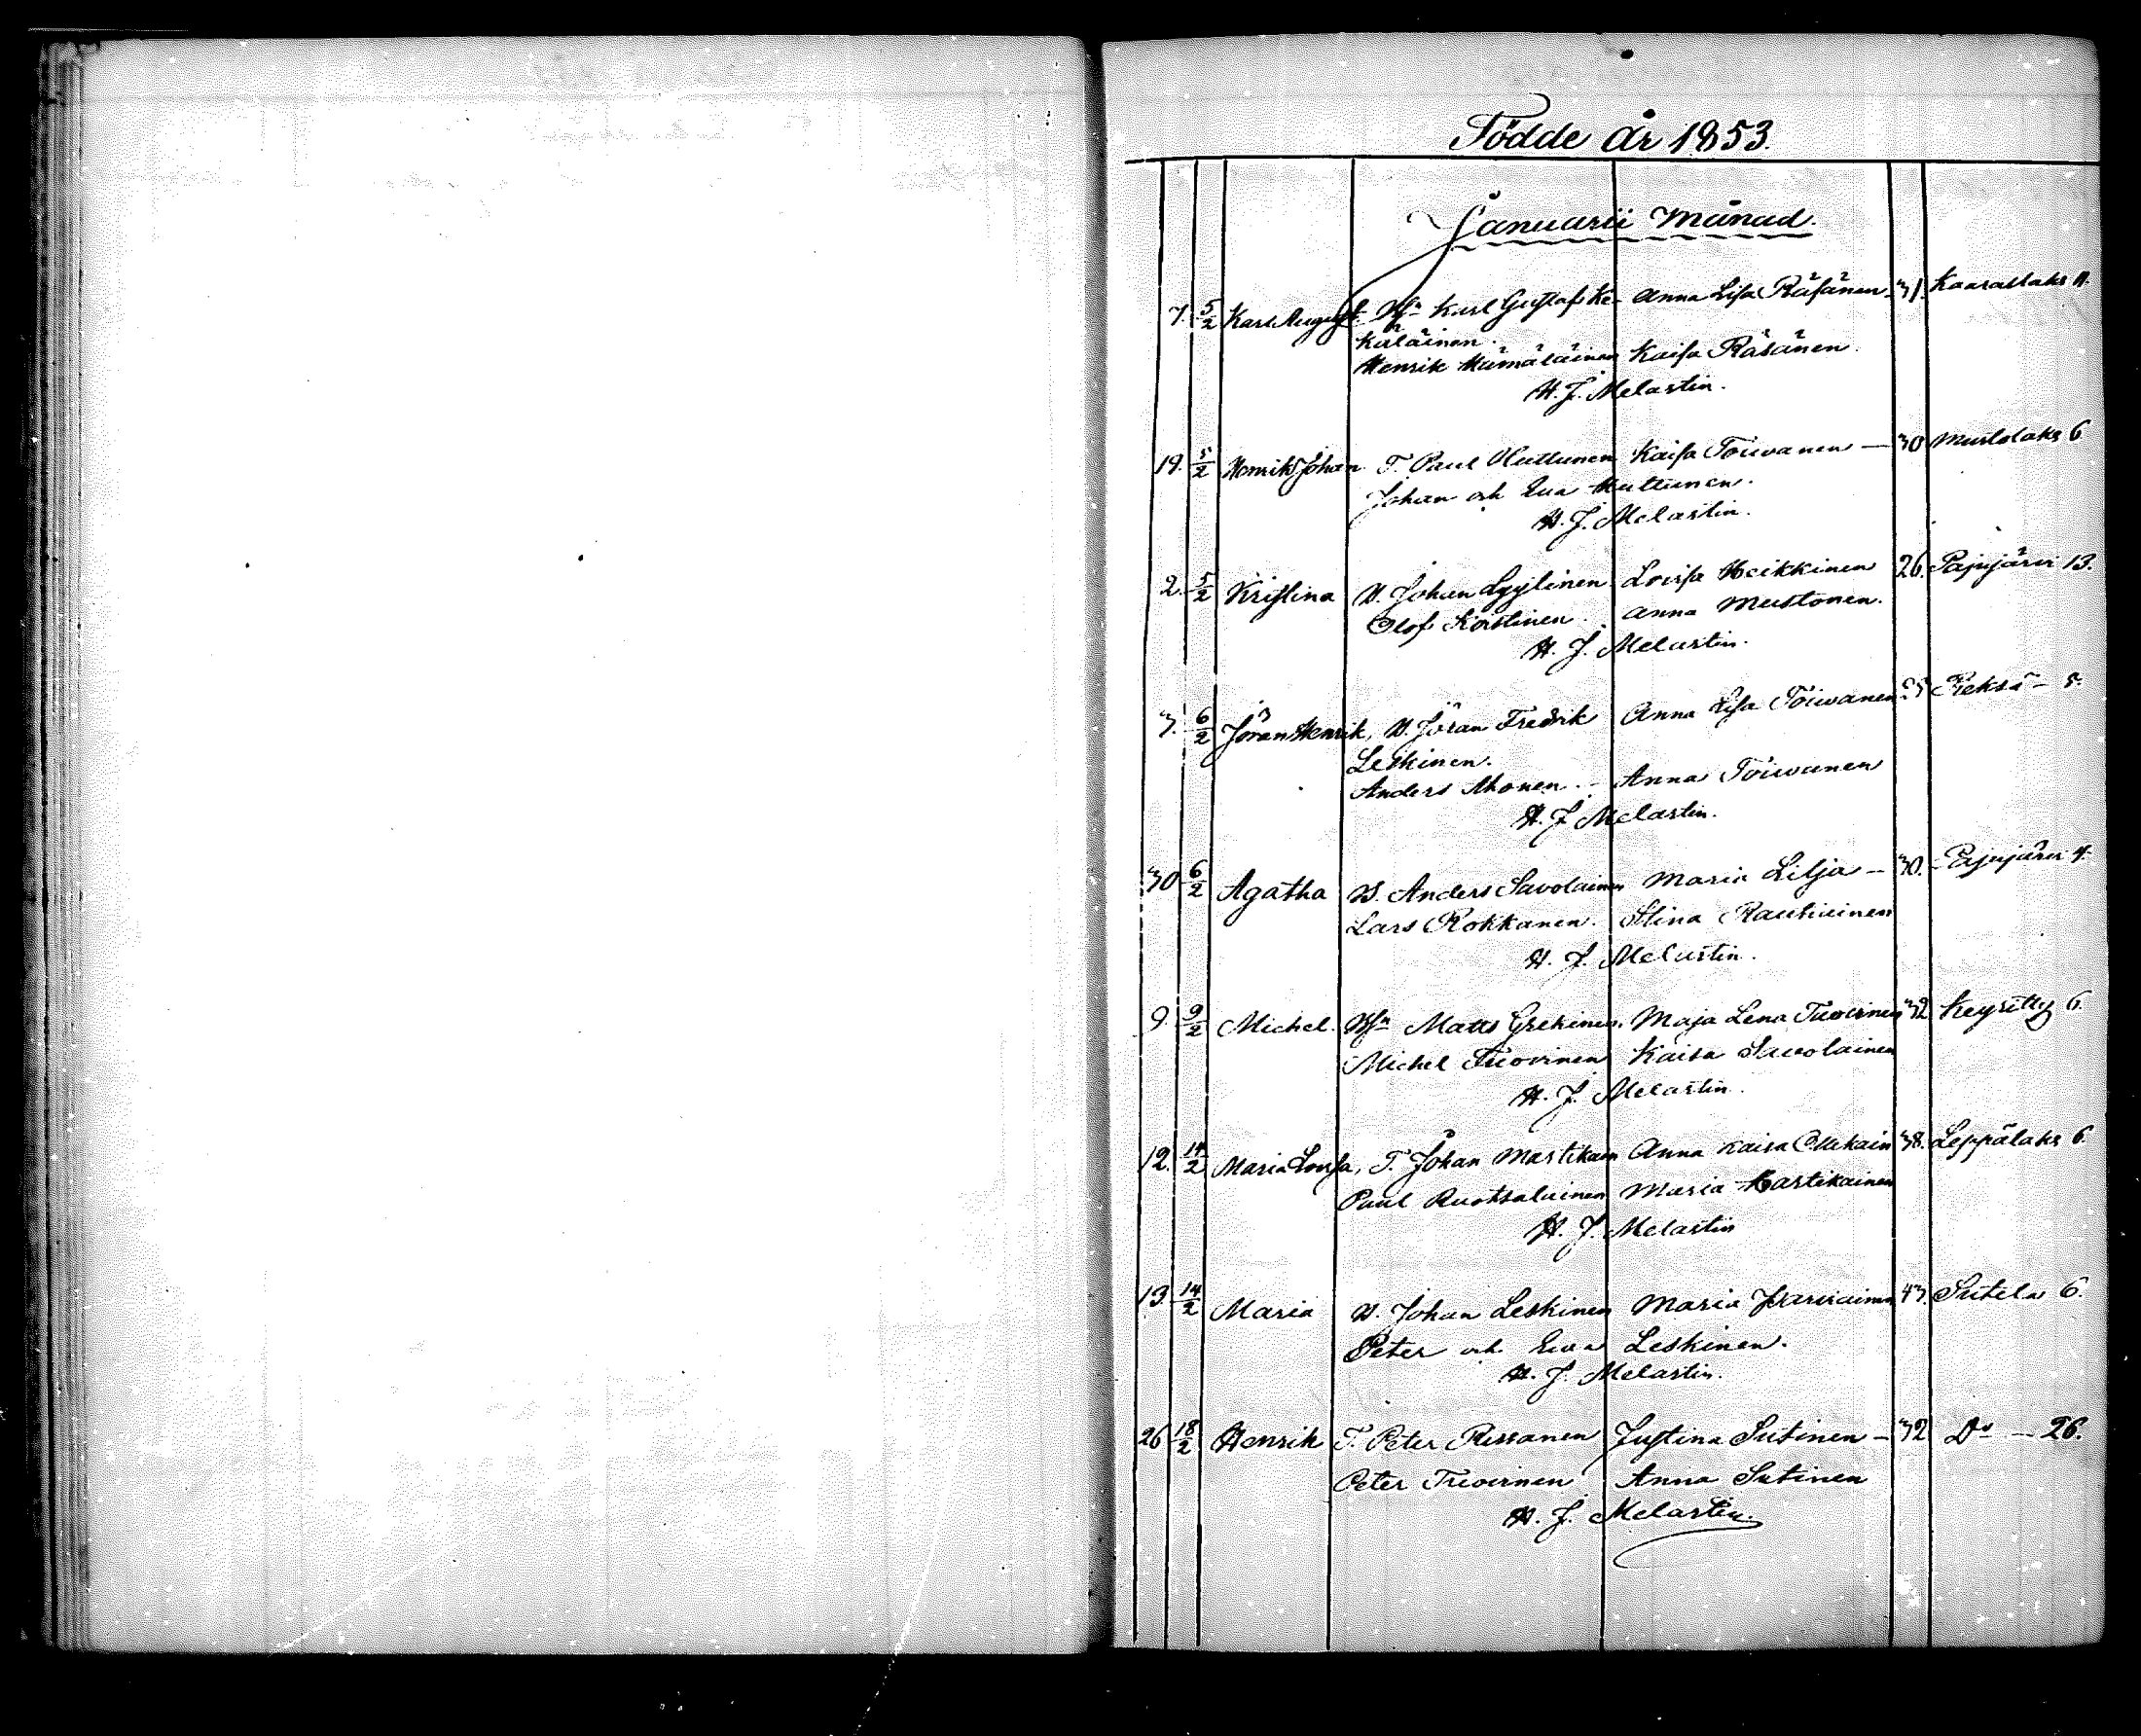 Födde år 1853.
Januarii månad.
7. 5/2 Karl August. Bfn Karl Gustaf Ke- Anna Lisa Räsänen 31. Kaarastaks 11.
käläinen.
Henrik Hämäläinen Kaisa Räsänen.
H. J. Melartin.
19. 5/2 Henrik Johan T. Paul Huttunen Kaisa Toivanen — 30 Mustolaks 6
Johan och Eva Huttunen.
H. J. Melartin.
2. 5/2 Kristina B. Johan Lyytinen Lovisa Heikkinen 26. Pajujärvi 13.
Olof Korstinen. Anna Mustonen.
H. J. Melartin.
3. 6/2 Jöran Henrik, B. Jöran Fredrik Anna Lisa Toivanen 25 Pieksä — 5.
Leskinen.
Anders Ahonen. — Anna Toivanen
H. J. Melartin.
30 6/2 Agatha B. Anders Savolainen Maria Lilja — 30. Pajujärvi 4.
Lars Rokkanen. Stina Rautiainen
H. J. Melartin.
9. 9/2 Michel. Bfn Matts Grekinen. Maja Lena Tuovinen 32 Keyritty 6.
Michel Tuovinen Kaisa Savolainen
H. J. Melartin.
12. 14/2 Maria Lovisa, T. Johan Martikain Anna Kaisa 38. Leppälaks 6.
Paul Ruotsalainen Maria Hartikainen
H. J. Melartin
13. 14/2 Maria B. Johan Leskinen Maria 43. Sutela 6.
Peter och Eva Leskinen.
H. J. Melartin.
26 18/2 Henrik T. Peter Rissanen Justina Sutinen — 32 Do — 26.
Peter Tuovinen Anna Sutinen
H. J. Melartin.